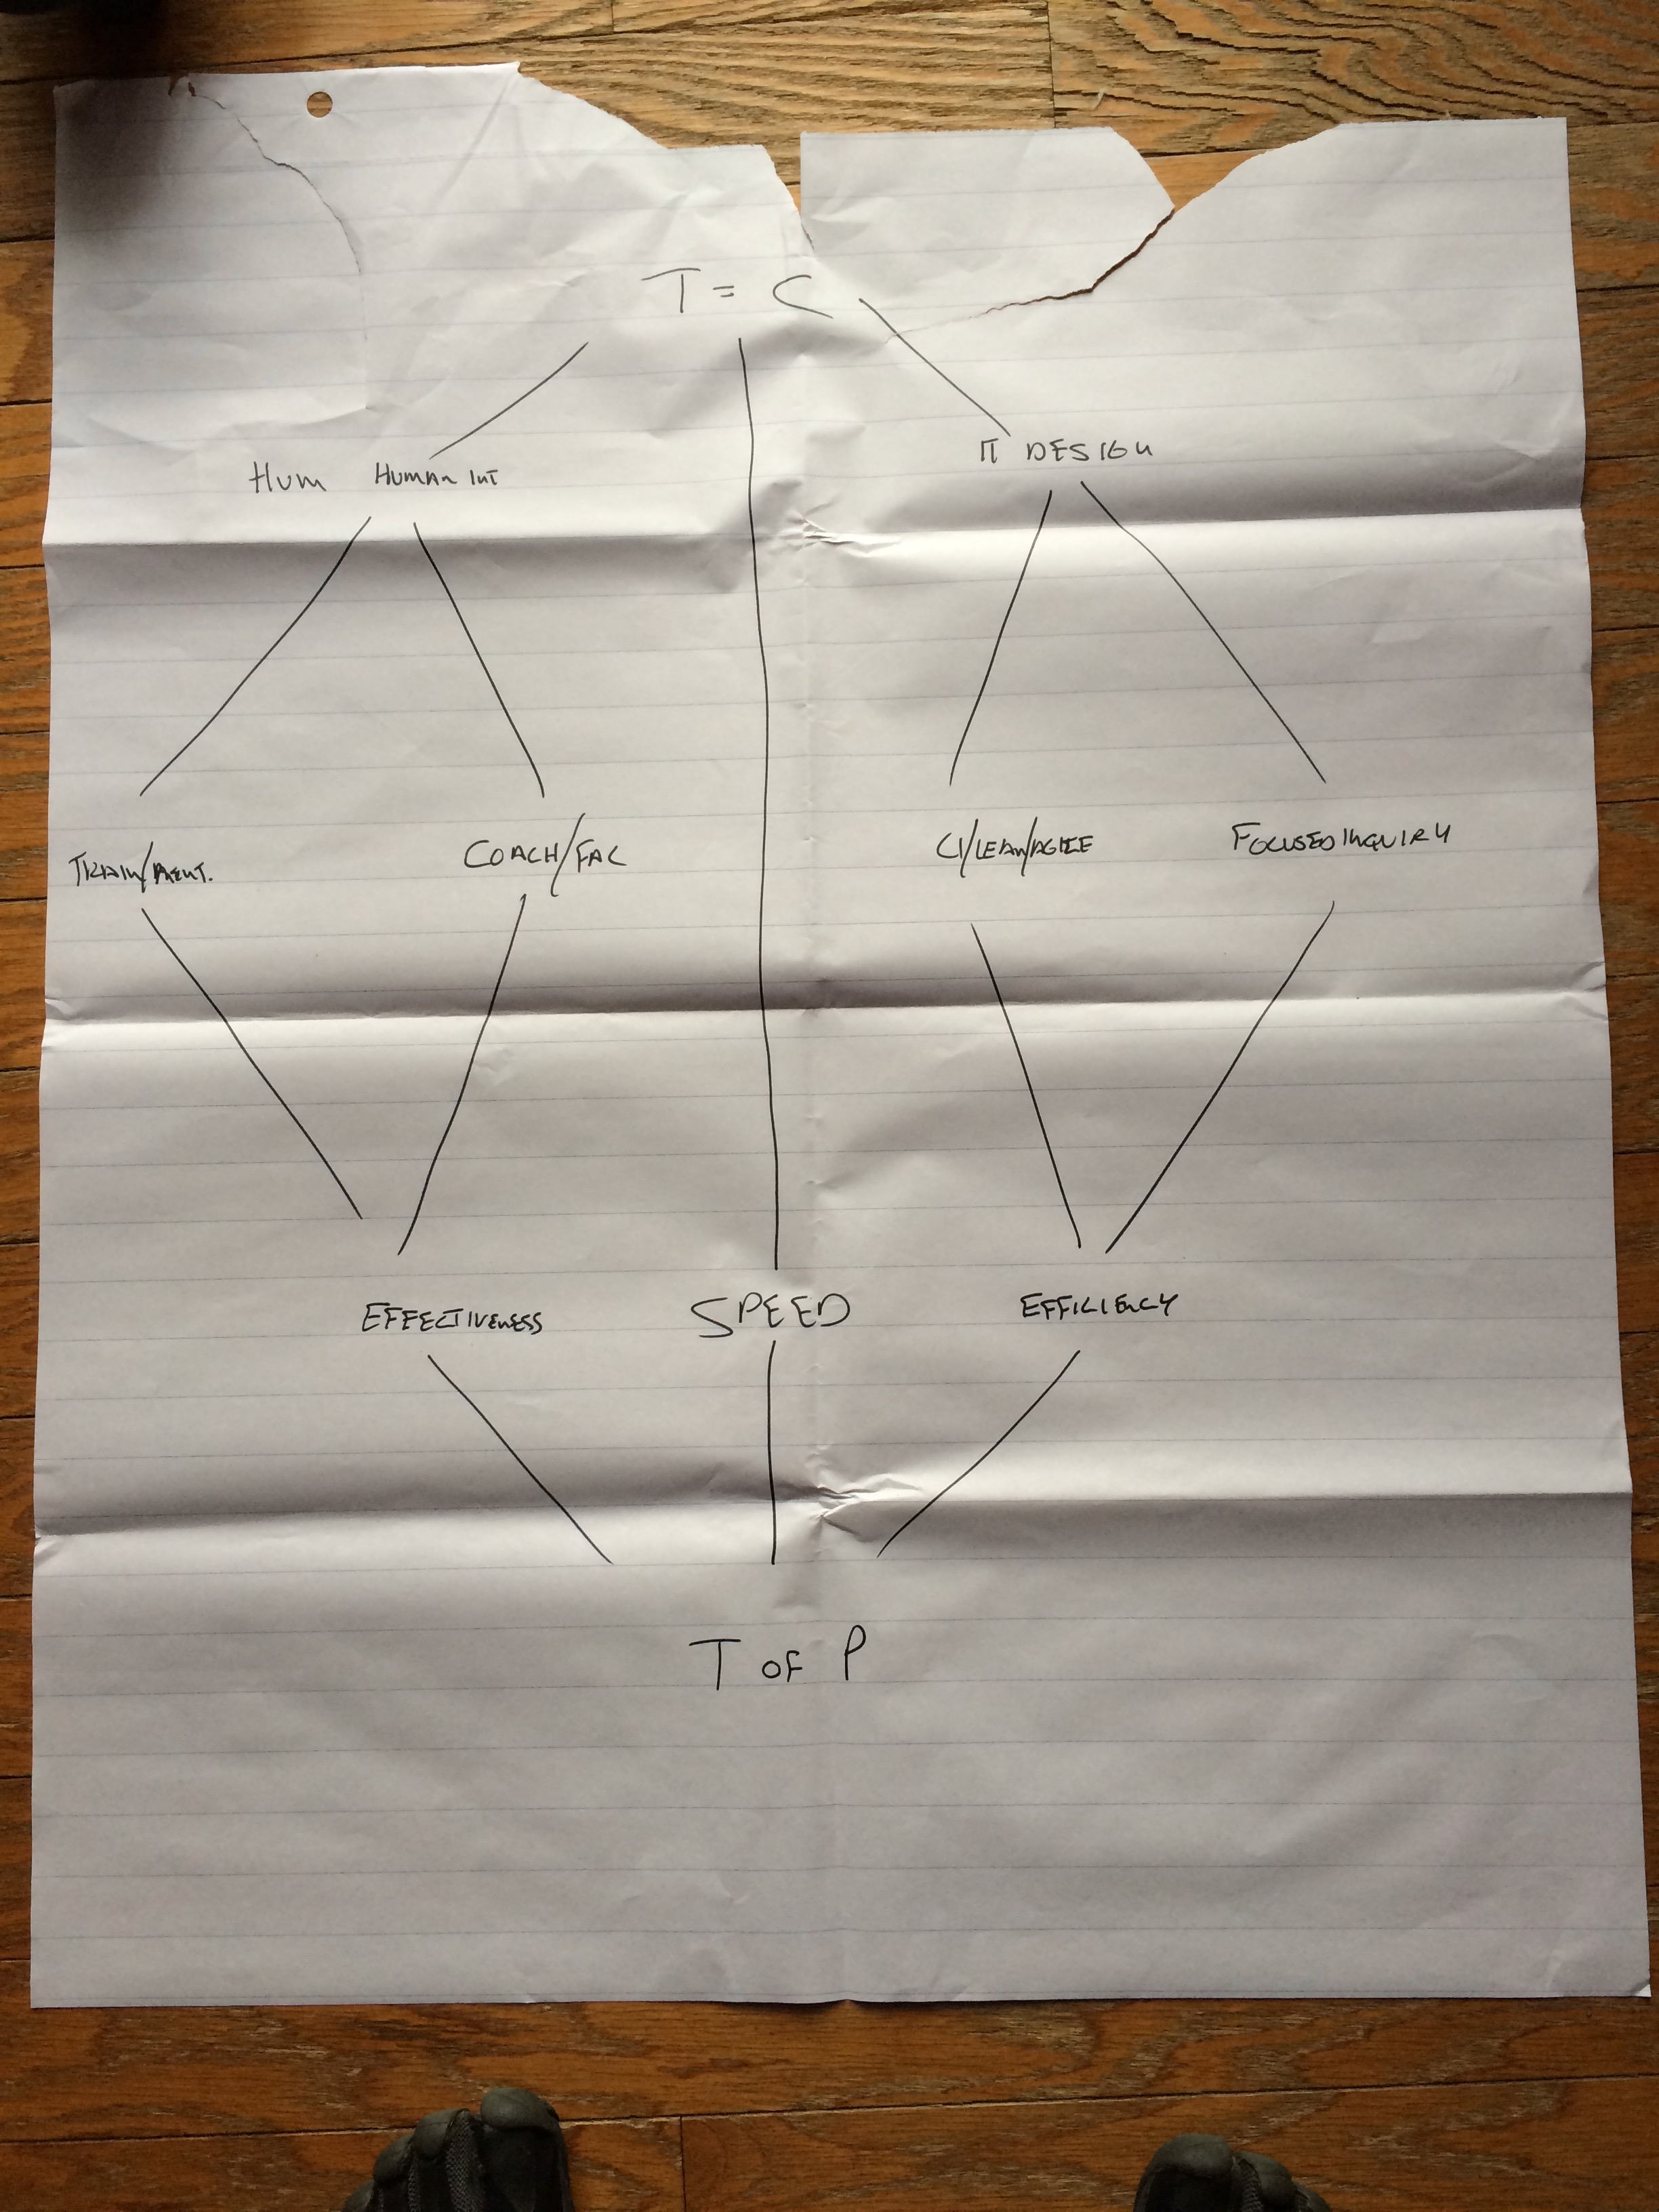 T = C
IT DESIGN
Hum Human Int
Train/Ment. COACH/FAC CI/LEAN/AGILE FOCUSED INQUIRY
EFFECTIVENESS SPEED EFFICIENCY
T OF P